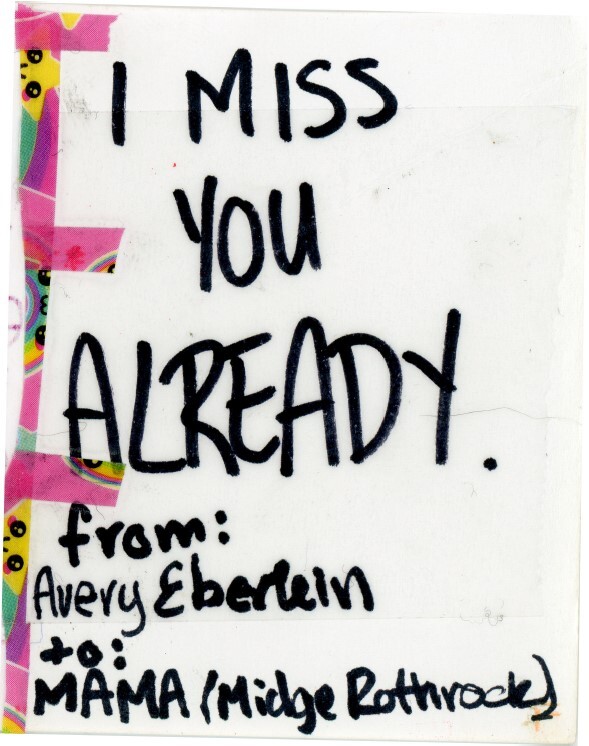 I MISS
YOU
ALREADY.
from:
Avery Eberlein
to:
MAMA (Midge Rothrock)